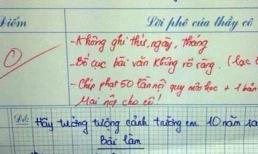 Điểm
Lời phê của thầy cô
- Không ghi thứ, ngày, tháng
- Bố cục bài văn không rõ ràng. (lạc
- Chép phạt 50 lần nội quy + 1 bản
Mai nộp cho cô!
Hãy tưởng tượng cảnh trường em 10 năm
Bài làm